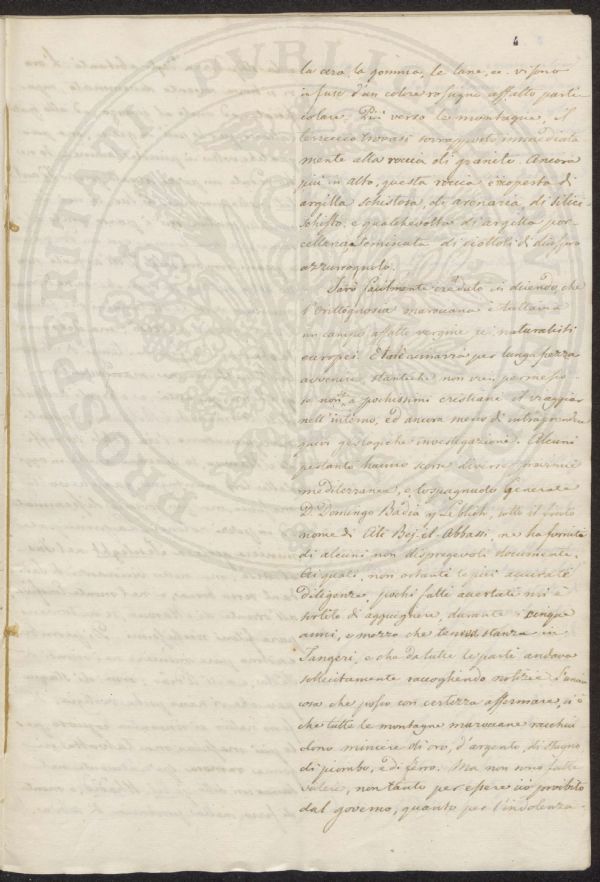 4
PROSPERITATI PVBLICAE
la cera, la gomma, le lane, ec. vi sono
infuse d'un colore rossigno affatto parti
colare. Più verso le montagne, il
terreccio trovasi sovrapposto immediata
mente alla roccia di granito. Ancora
più in alto, questa roccia è coperta di
argilla schistosa, di arenaria, di silici-
schisto, e qualchevolta di argilla por-
cellanea seminata di ciottoli di diaspro
azzurrognolo.
Sarò facilmente creduto in dicendo, che
l'Orittognosia marocana è tuttavia
un campo affatto vergine pe' naturalisti
europei. E tale rimarrà per lunga pezza
avvenire stantechè non vien permesso
se non a pochissimi cristiani il viaggiar
nell'interno, ed ancora meno di intraprendere
quivi geologiche investigazioni. Alcuni
pertanto hanno scorse diverse
mediterranee, e lo spagnuolo Generale
D. Domingo Badia y Leblich, sotto il finto
nome di Ali Bej-el-Abbassi, ne ha forniti
di alcuni non dispregevoli documenti.
Ai quali, non ostanti le più accurate
diligenze, pochi fatti accertati mi è
sortito di aggiugnere, durante i cinque
anni, e mezzo che tenni stanza in
Tangeri, e che da tutte le parti andava
sollecitamente raccogliendo notizie. L'unica
cosa che posso con certezza affermare, si è
che tutte le montagne marocane racchiu
dono miniere di oro, d'argento, di stagno
di piombo, e di ferro. Ma non sono fatte
valere, non tanto per essere ciò proibito
dal governo, quanto per l'indolenza